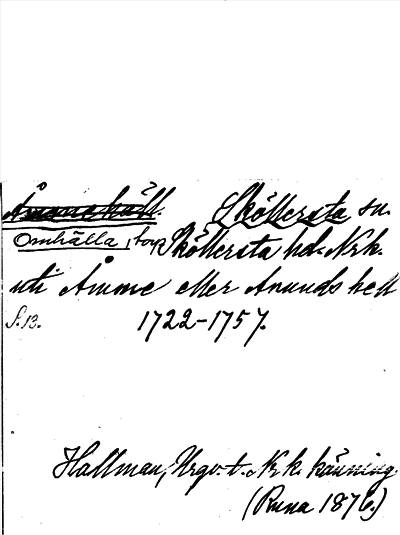 Åmmehäll. Sköllersta sn.
Omhälla, torp Sköllersta hd. Nrk.
uti Åmme eller Anunds hell
S. 13. 1722-1757.
Hallman, Urgv. t. Nrk. känning.
(Runa 1876.)